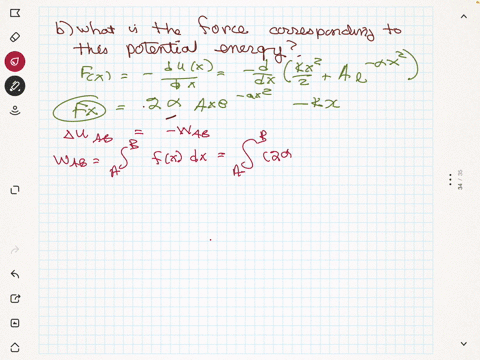 b) what is the force corresponding to
this potential energy?
F(x) = - du(x)/dx = -d/dx (kx²/2 + A e^-αx²)
Fx = 2α Axe^-αx² - kx
ΔU AB = -WAB
WAB = ∫A^B f(x) dx = ∫A^B (2α
34 / 35